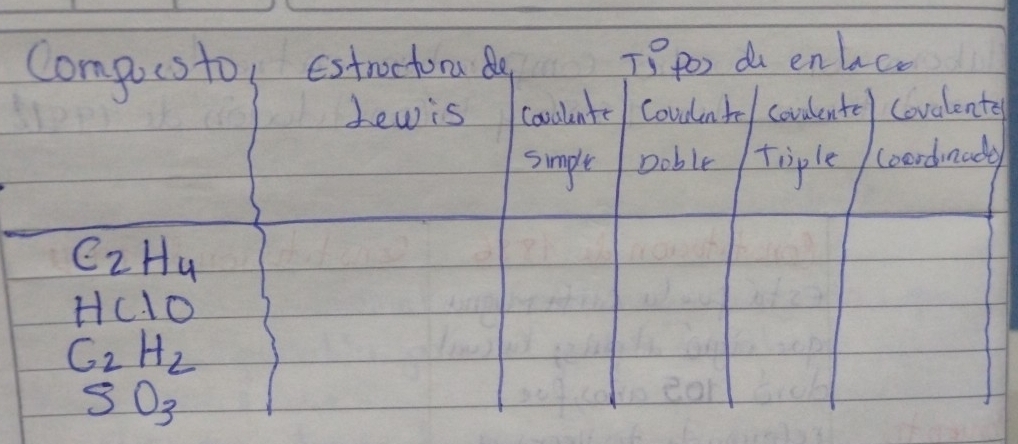 Compuesto Estructura de Tipos de enlace
Lewis Covalente Covalente Covalente Covalente
Simple Doble Triple Coordinado
C2H4
HClO
C2H2
SO3